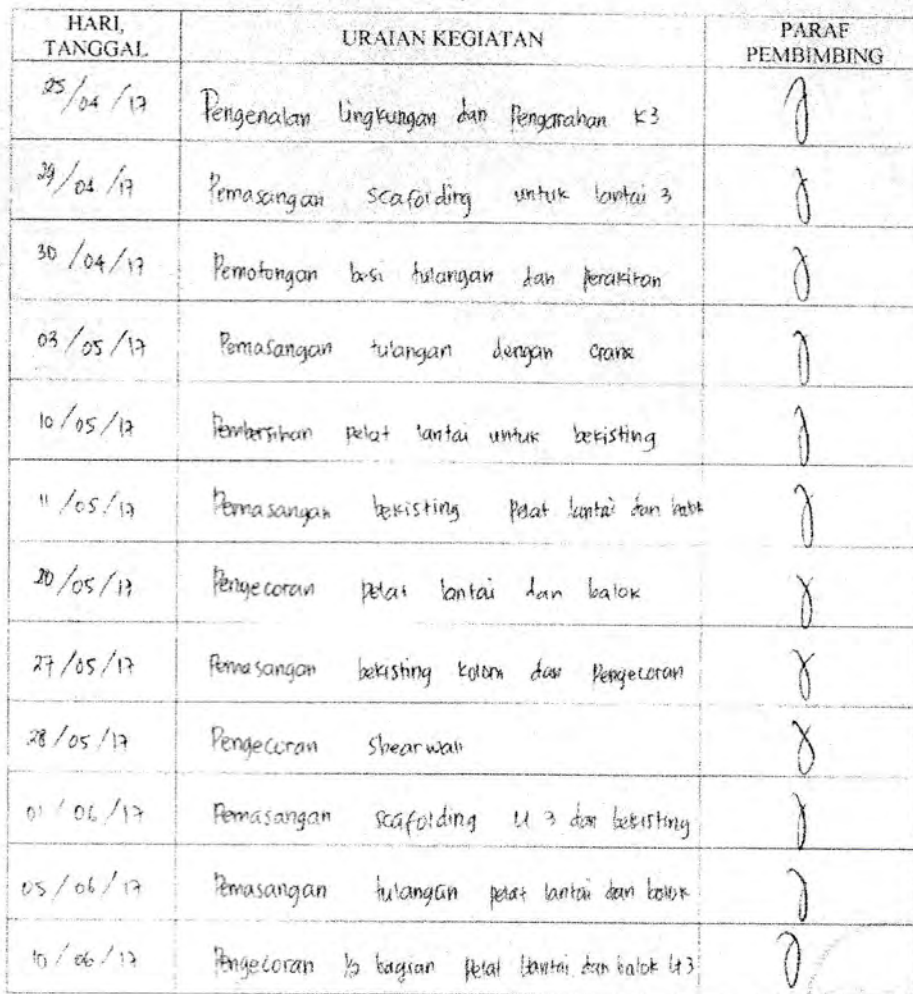 HARI, TANGGAL URAIAN KEGIATAN PARAF PEMBIMBING
25/04/17 Pengenalan lingkungan dan Pengarahan K3
29/04/17 Pemasangan scafolding untuk lantai 3
30/04/17 Pemotongan besi tulangan dan Perakitan
03/05/17 Pemasangan tulangan dengan crane
10/05/17 Pembersihan pelat lantai untuk bekisting
11/05/17 Pemasangan bekisting pelat lantai dan balok
20/05/17 Pengecoran pelat lantai dan balok
27/05/17 Pemasangan bekisting kolom dan Pengecoran
28/05/17 Pengecoran shearwall
01/06/17 Pemasangan scafolding Lt 3 dan bekisting
05/06/17 Pemasangan tulangan pelat lantai dan balok
10/06/17 Pengecoran 1/2 bagian pelat lantai dan balok Lt3